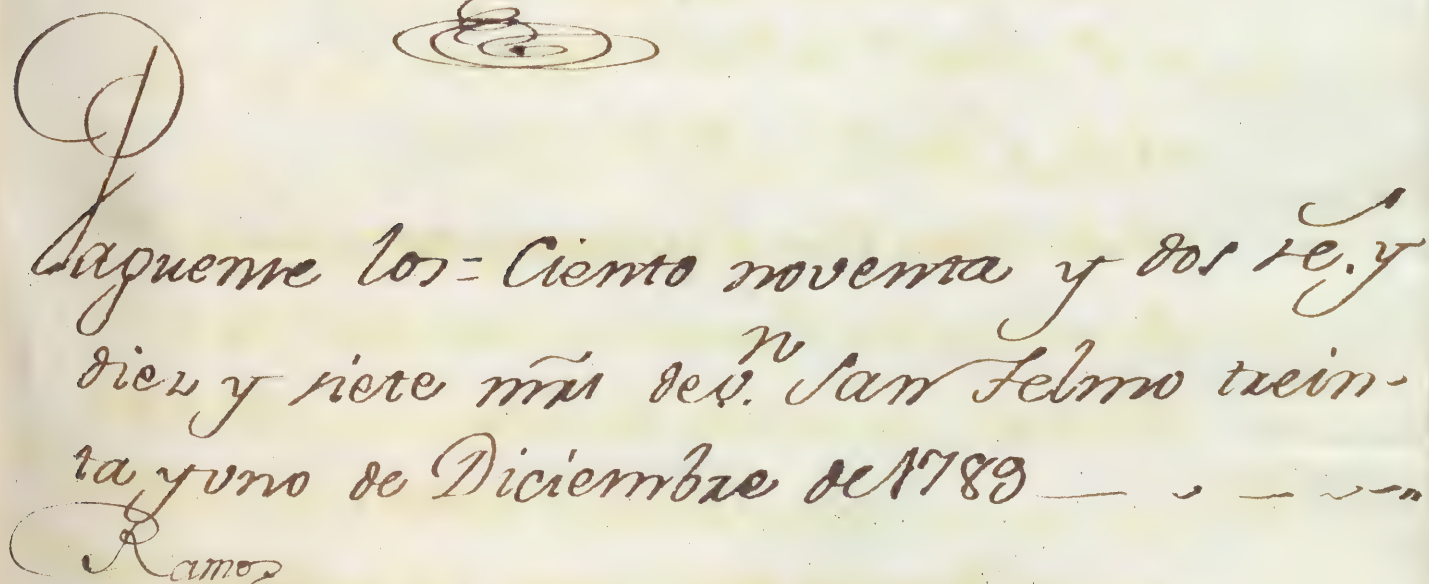 Paguense los = Ciento noventa y dos rˢ. y
diez y siete mrs de v.ⁿ San Telmo trein-
ta y uno de Diciembre de 1789
Ramos